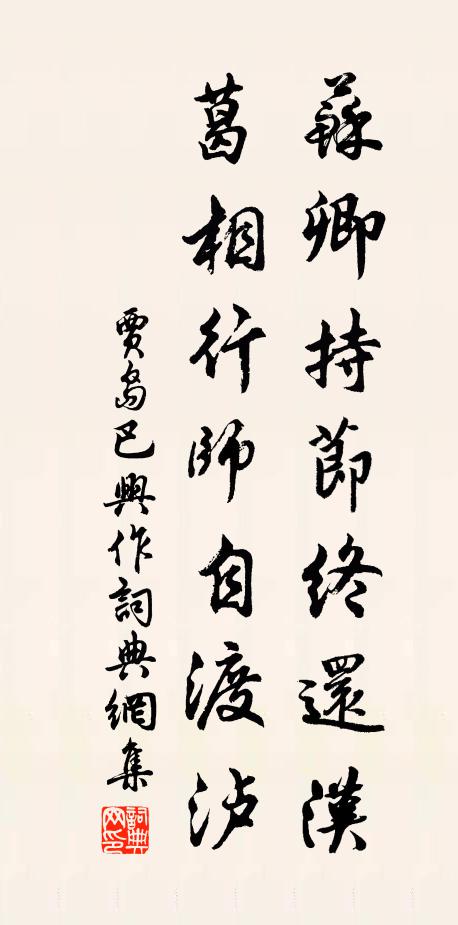 蘇卿持節終還漢
葛相行師自渡泸
賈島巴興作詞典網集
詞典网印